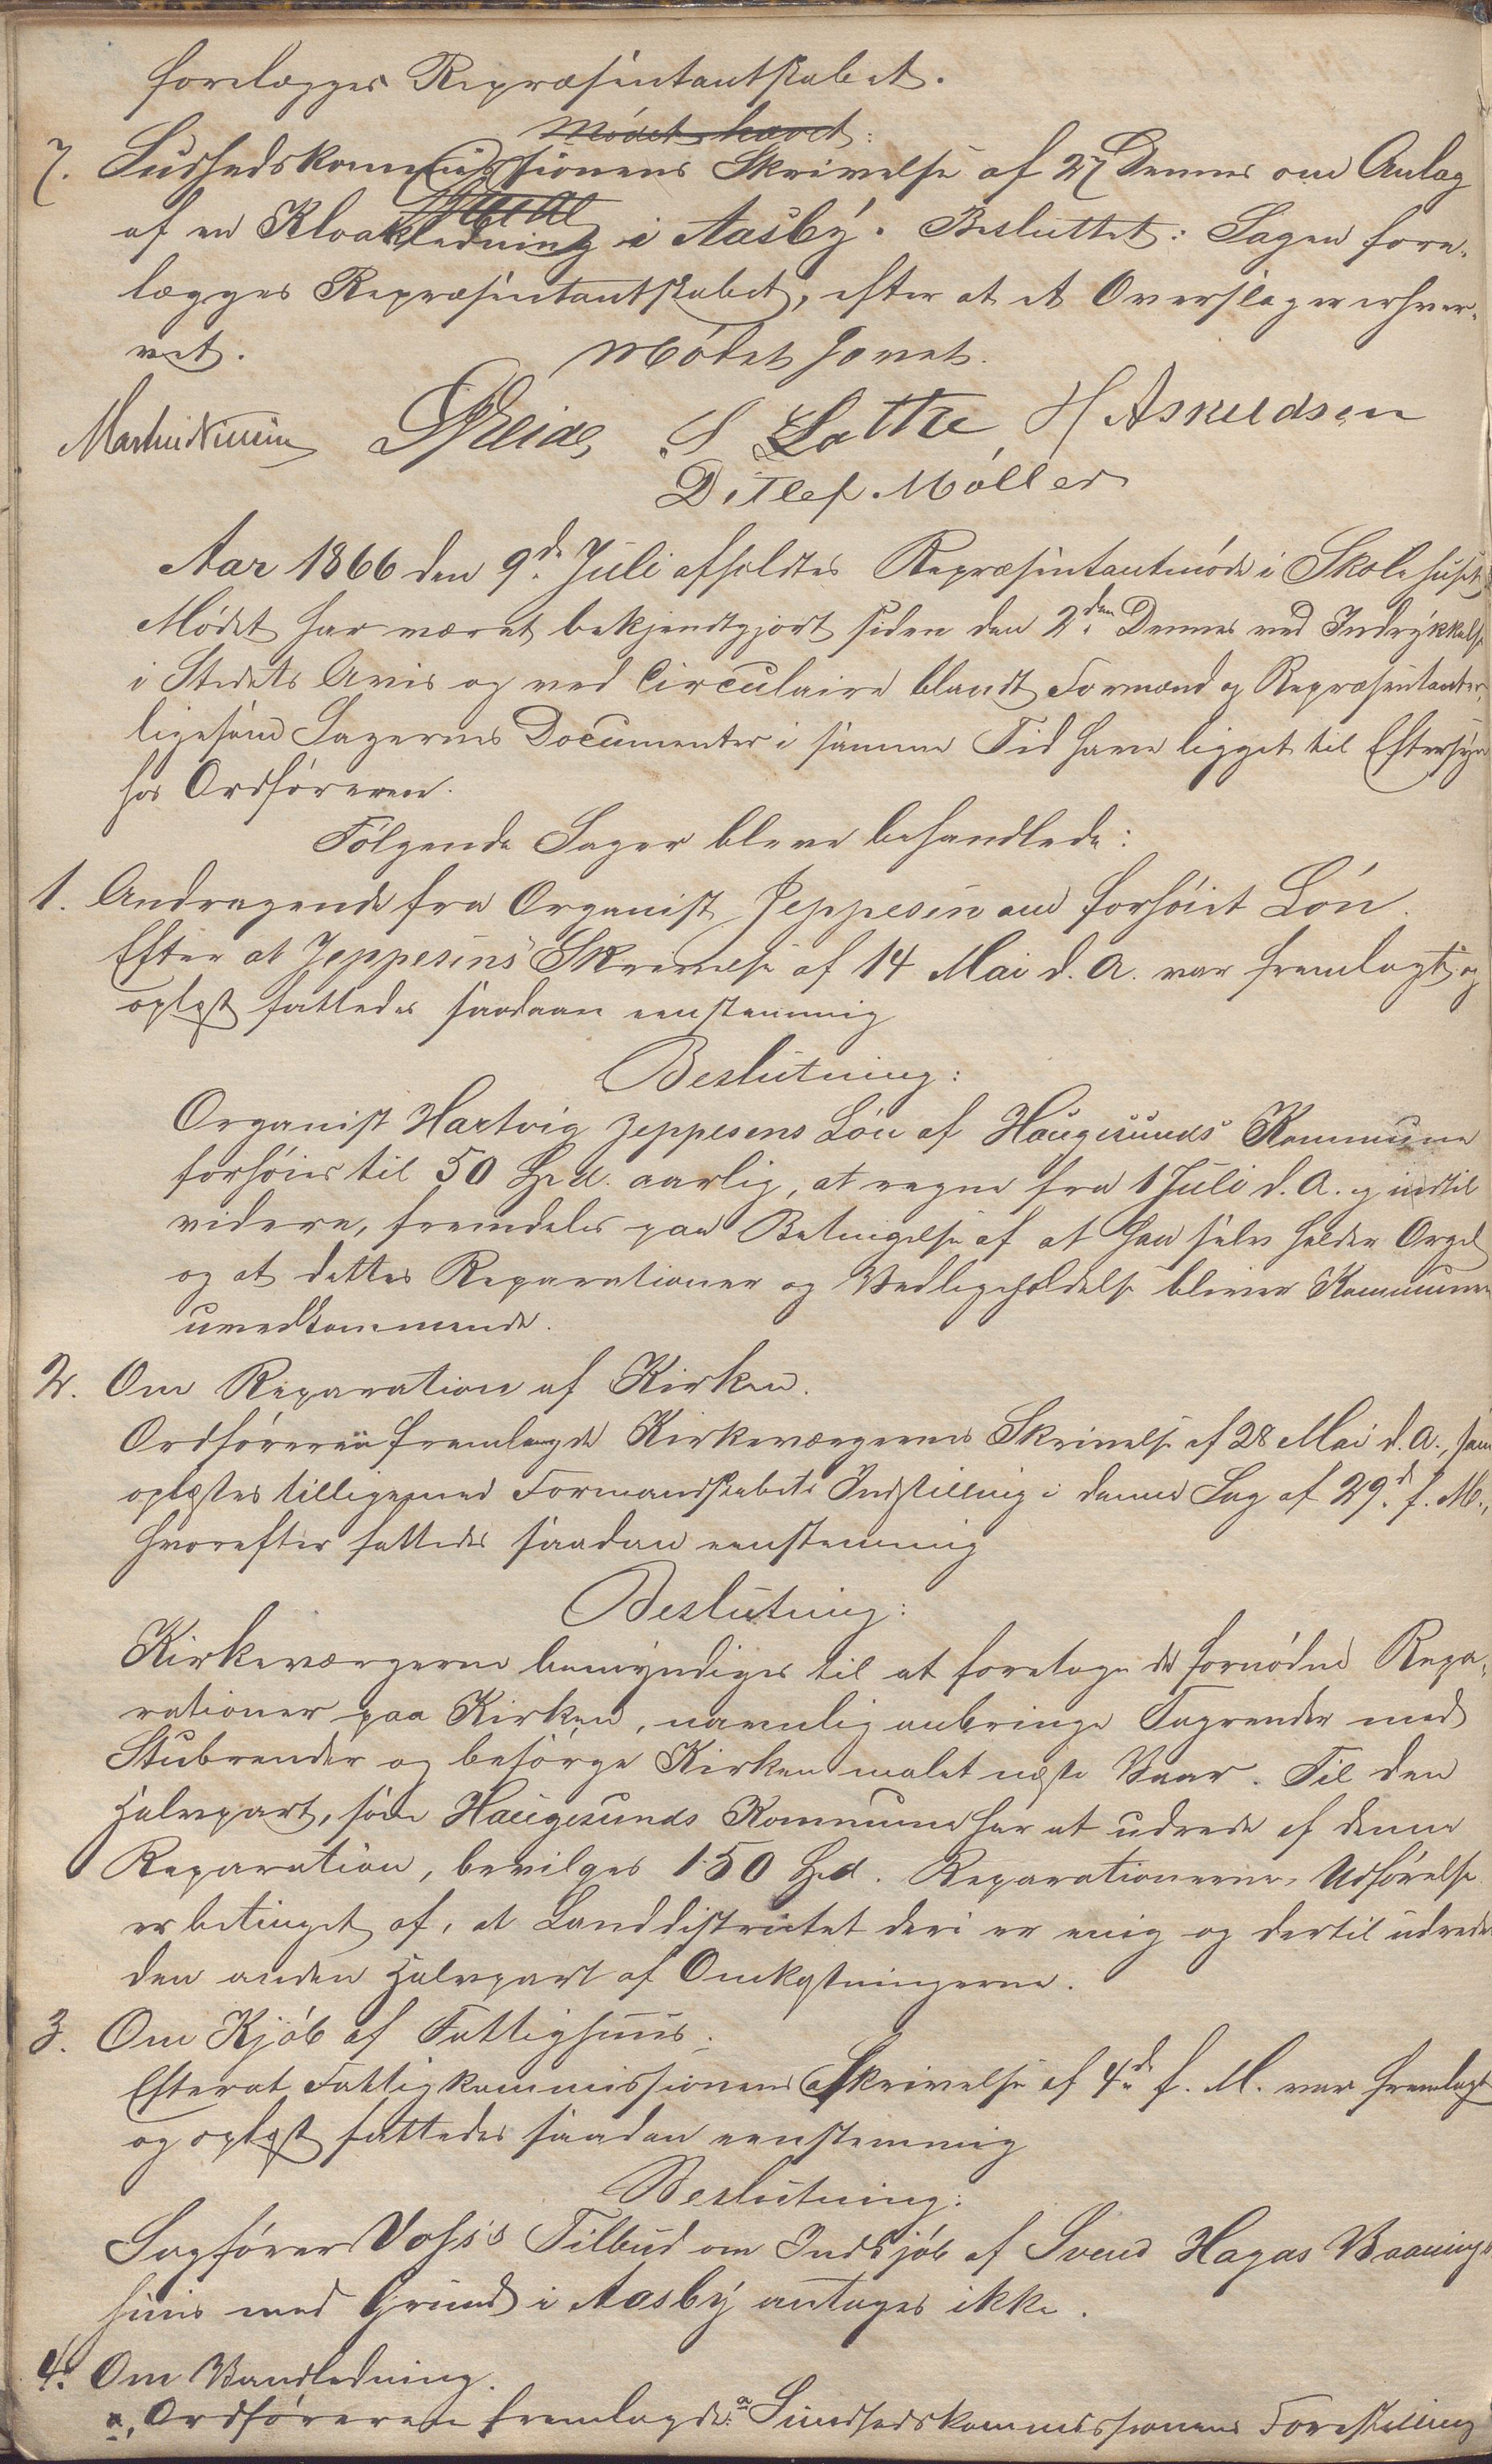 forelægges Repræsentantskabet.
Mødet hævet:
7. Sundhedskommissionens Skrivelse af 27 Dennes om Anlæg
af en Kloakledning i Aasby. Besluttet: Sagen fore-
lægges Repræsentantskabet, efter at et Overslag er erhver-
vet. Mødet hævet.
S Lothe H Asmundsen
Ditlef. Møller
Aar 1866 den 9de Juli afholdtes Repræsentantmøde i Skolehuset.
Mødet har været bekjendtgjort siden den 2den Dennes ved Indrykkelse
i Stedets Avis og ved Circulaire blandt Formænd og Repræsentanter,
ligesom Sagernes Documenter i samme Tid have ligget til Eftersyn
hos Ordføreren.
Følgende Sager bleve behandlede:
1. Andragende fra Organist Jeppesen om forhøiet Løn.
Efter at Jeppesens Skrivelse af 14 Mai d. A. var fremlagt og
oplæst fattedes saadan eenstemmig
Beslutning:
Organist Hartvig Jeppesens Løn af Haugesunds Kommune
forhøies til 50 Spd. aarlig, at regne fra 1 Juli d. A. og indtil
videre, fremdeles paa Betingelse af at han selv holder Orgel
og at dettes Reparationer og Vedligeholdelse bliver Kommunen
uvedkommende.
2. Om Reparation af Kirken.
Ordføreren fremlagde Kirkeværgernes Skrivelse af 28 Mai d. A., som
oplæstes tilligemed Formandskabets Indstilling i denne Sag af 29d f. M.,
hvorefter fattedes saadan eenstemmig
Beslutning:
Kirkeværgerne bemyndiges til at foretage de fornødne Repa-
rationer paa Kirken, navnlig anbringe Tagrender med
Stubrender og besørge Kirken malet næste Vaar. Til den
Halvpart, som Haugesunds Kommune har at udrede af denne
Reparation, bevilges 150 Spd. Reparationernes Udførelse
er betinget af, at Landdistrictet deri er enig og dertil udreder
den anden Halvpart af Omkostningerne.
3. Om Kjøb af Fattighuus.
Efterat Fattigkommissionens Skrivelse af 4de f. M. var fremlagt
og oplæst fattedes saadan eenstemmig
Beslutning:
Sagfører Vohs's Tilbud om Indkjøb af Svend Hagas Vaanings
huus med Grund i Aasby antages ikke.
4. Om Vandledning.
a, Ordføreren fremlagde: a Sundhedskommissionens Forestilling